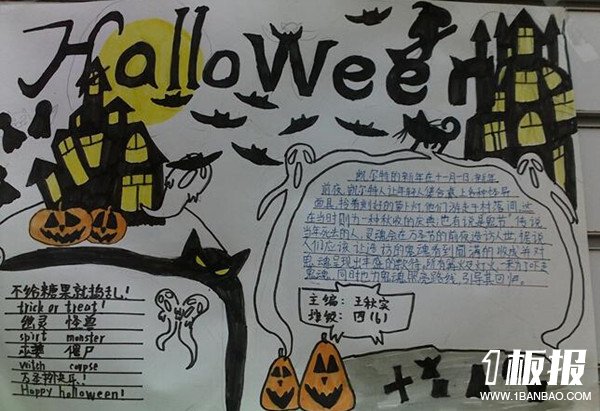 Halloween
凯尔特的新年在十一月一日,新年
前夜,凯尔特人让年轻人集合戴上各种怪异
面具,拎着刻好的萝卜灯,他们游走于村落间,这
在当时则为一种秋收的庆典;也有说是"鬼节"传说
当年死去的人,灵魂会在万圣节的前夜造访人世,据说
人们应该让造访的鬼魂看到圆满的收成并对
鬼魂呈现出丰盛的款待。所有篝火及灯火,
鬼魂,同时也为鬼魂照亮路线,引导其回归。
主编:王秋实
班级:四(6)
不给糖果就捣乱!
trick or treat!
幽灵 怪兽
spirt monster
巫婆 僵尸
witch corpse
万圣节快乐!
Happy halloween!
1板报
WWW.1BANBAO.COM